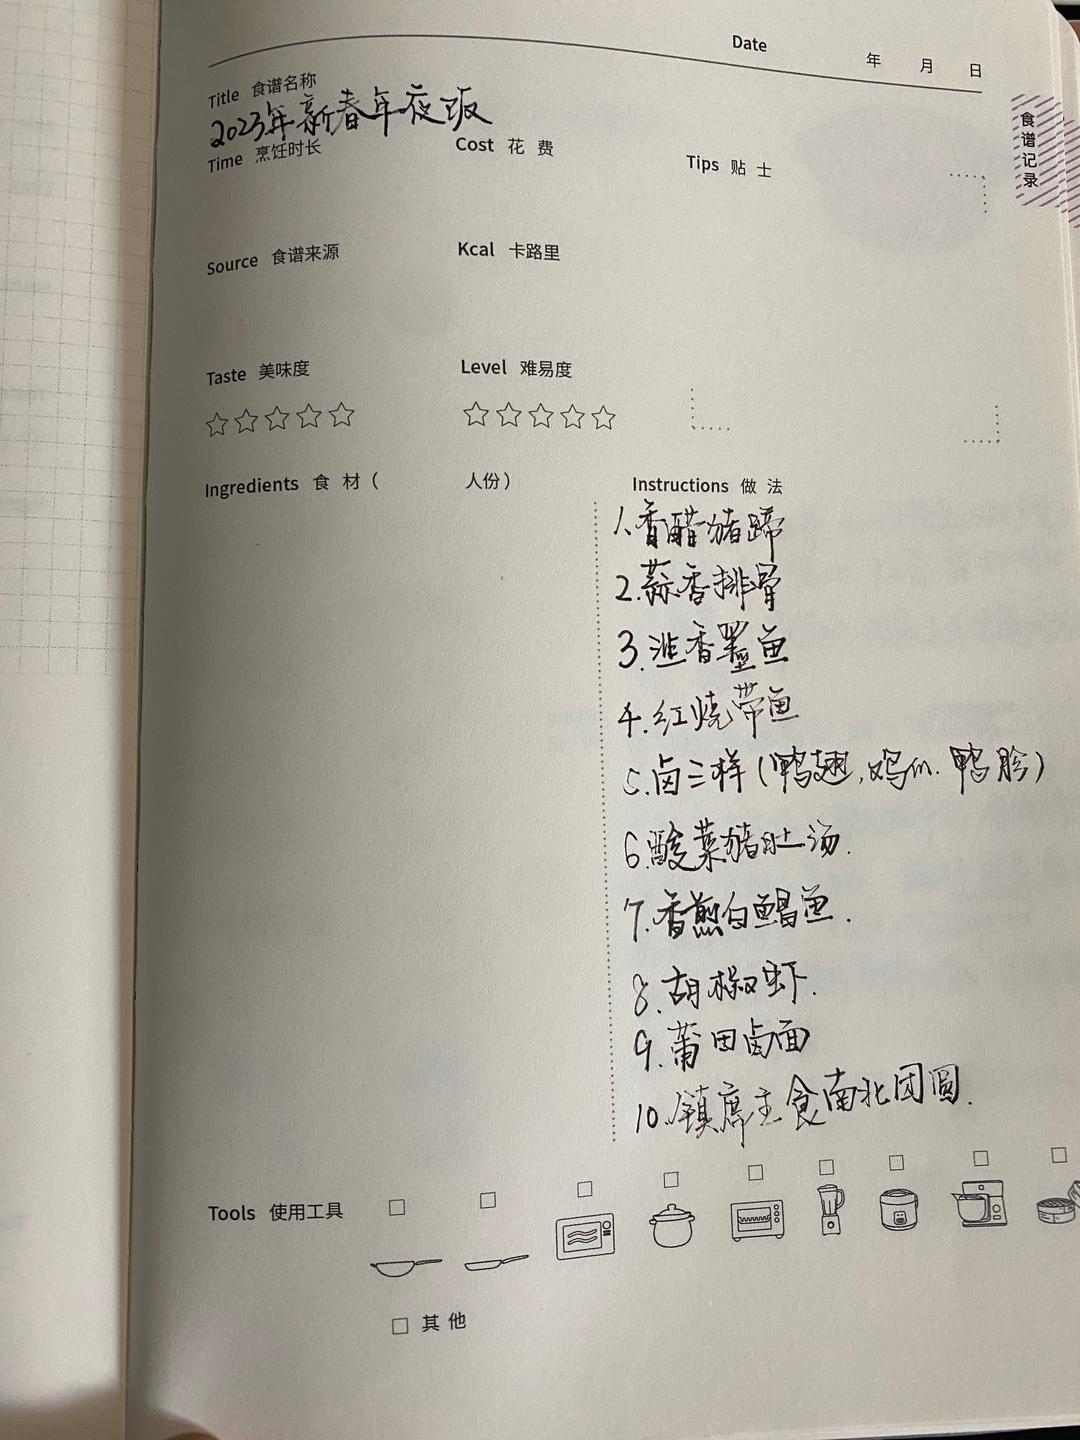 Date 年 月 日
Title 食谱名称
2023年新春年夜饭
Time 烹饪时长 Cost 花 费 Tips 贴 士
食谱记录
Source 食谱来源 Kcal 卡路里
Taste 美味度 Level 难易度
Ingredients 食 材 ( 人份) Instructions 做 法
1.香醋猪蹄
2.蒜香排骨
3.香墨鱼
4.红烧带鱼
5.卤三样(鸭翅,鸡爪.鸭胗)
6.酸菜猪肚汤.
7.香煎白鲳鱼.
8.胡椒虾.
9.莆田卤面
10.镇席主食南北团圆.
Tools 使用工具
其他